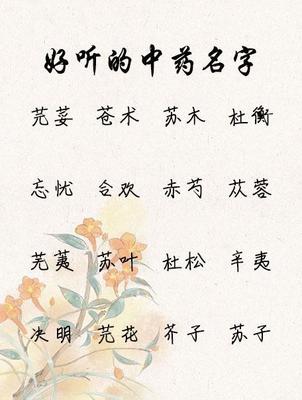 好听的中药名字
芫荽 苍术 苏木 杜衡
忘忧 合欢 赤芍 苁蓉
芫荑 苏叶 杜松 辛夷
决明 芫花 芥子 苏子